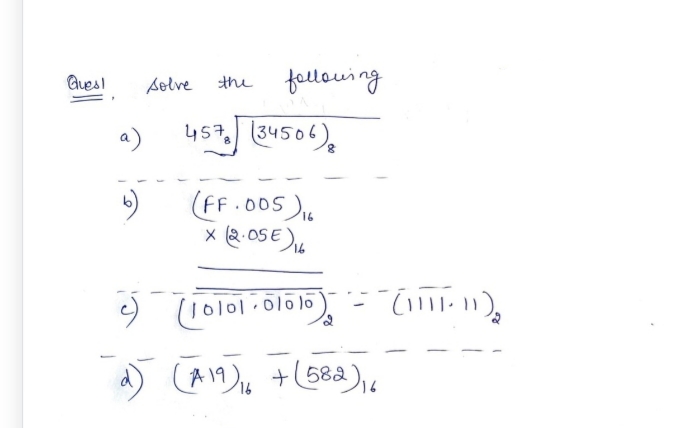 Ques1. solve the following
a) 457₈ (34506)₈
b) (FF.005)₁₆
× (2.05E)₁₆
c) (10101.01010)₂ - (1111.11)₂
d) (A19)₁₆ + (582)₁₆